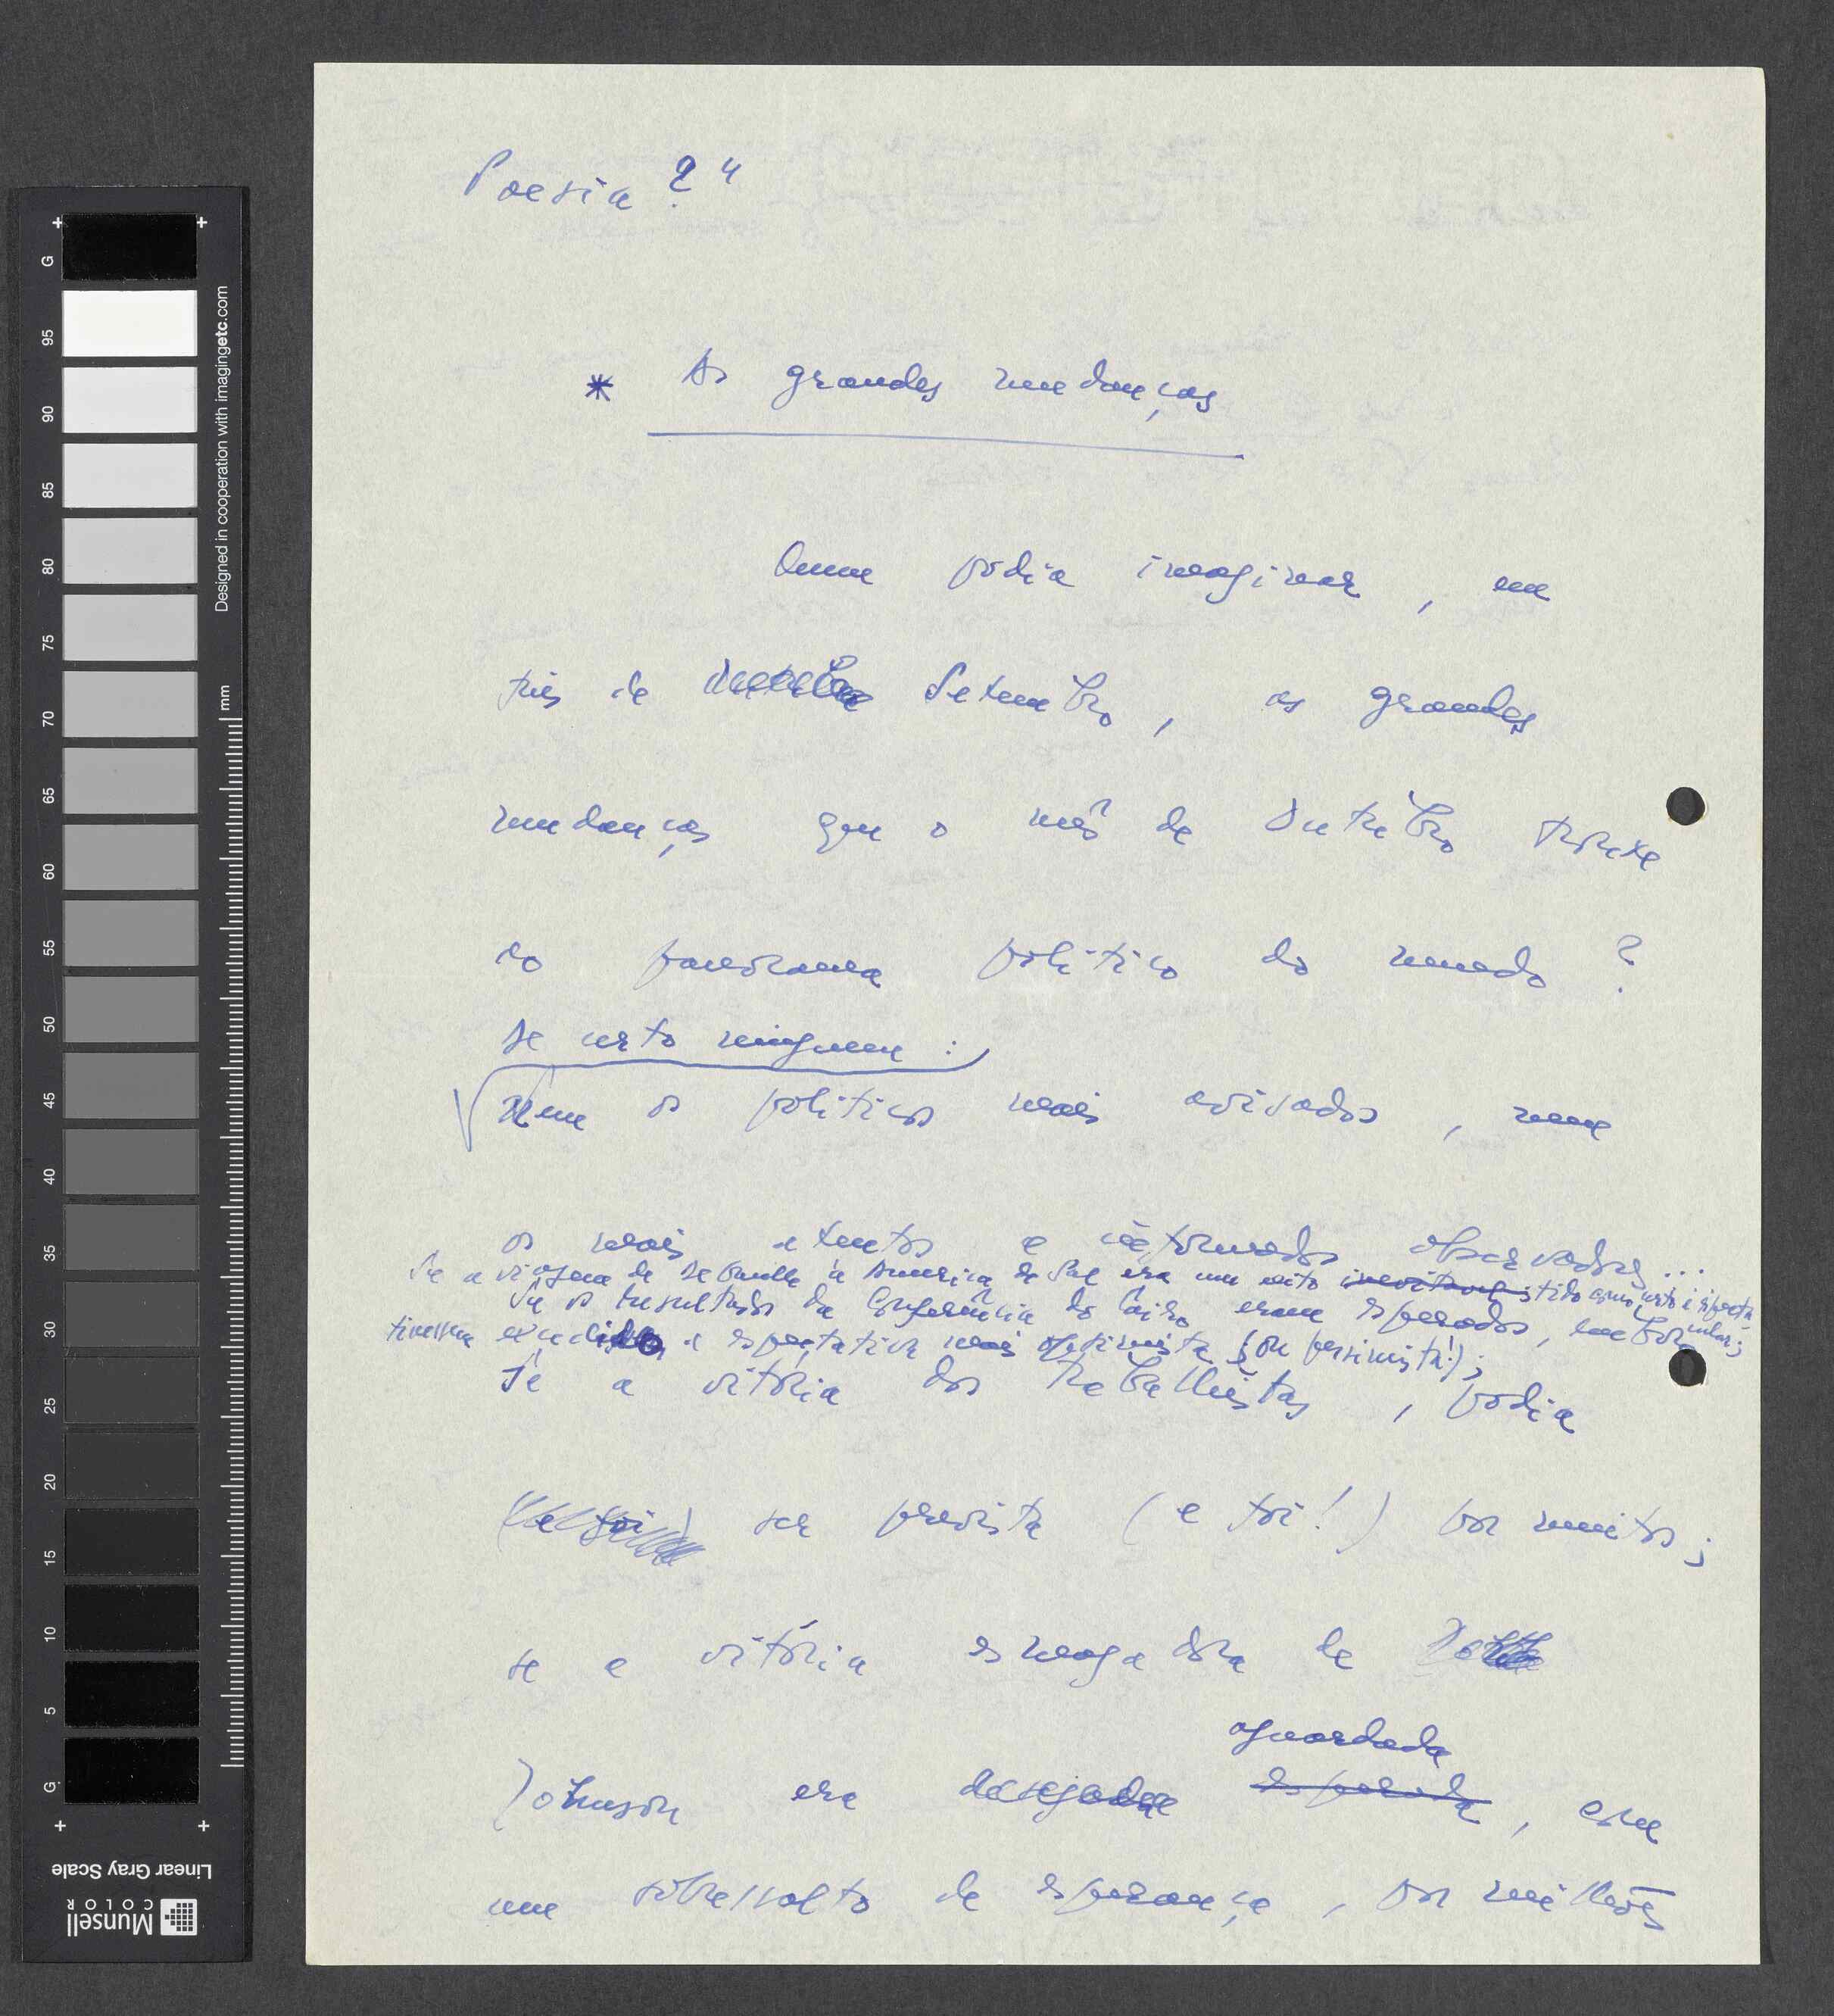 Poesia ? "
* As grandes mudanças
Quem podia imaginar, em
três de Setembro, as grandes
mudanças que o mês de Outubro trouxe
ao panorama politico do mundo ?
De certo ninguem :
Nem os politicos mais avisados, nem
os mais atentos e informados observadores...
Se a viagem de De Gaulle à America do Sul era um exito inevitavel tido como certo e espectacular;
Se os resultados da Conferência do Cairo eram esperados, embora
tivessem excedido a espectativa mais optimista (ou pessimista!);
Se a vitória dos trabalhistas, podia
(e foi) ser prevista (e foi!) por muitos;
se a vitória esmagadora de
Johnson era desejada esperada aguardada, com
um sobressalto de esperança, por milhões
G 95 90 85 80 75 70 65 60 55 50 45 40 35 30 25 20 15 10 5 G
mm
Designed in cooperation with imagingetc.com
Linear Gray Scale
Munsell
COLOR